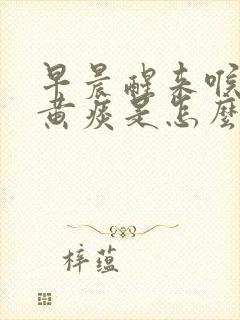 早晨醒来喉
黄痰是怎麽
梓蕴